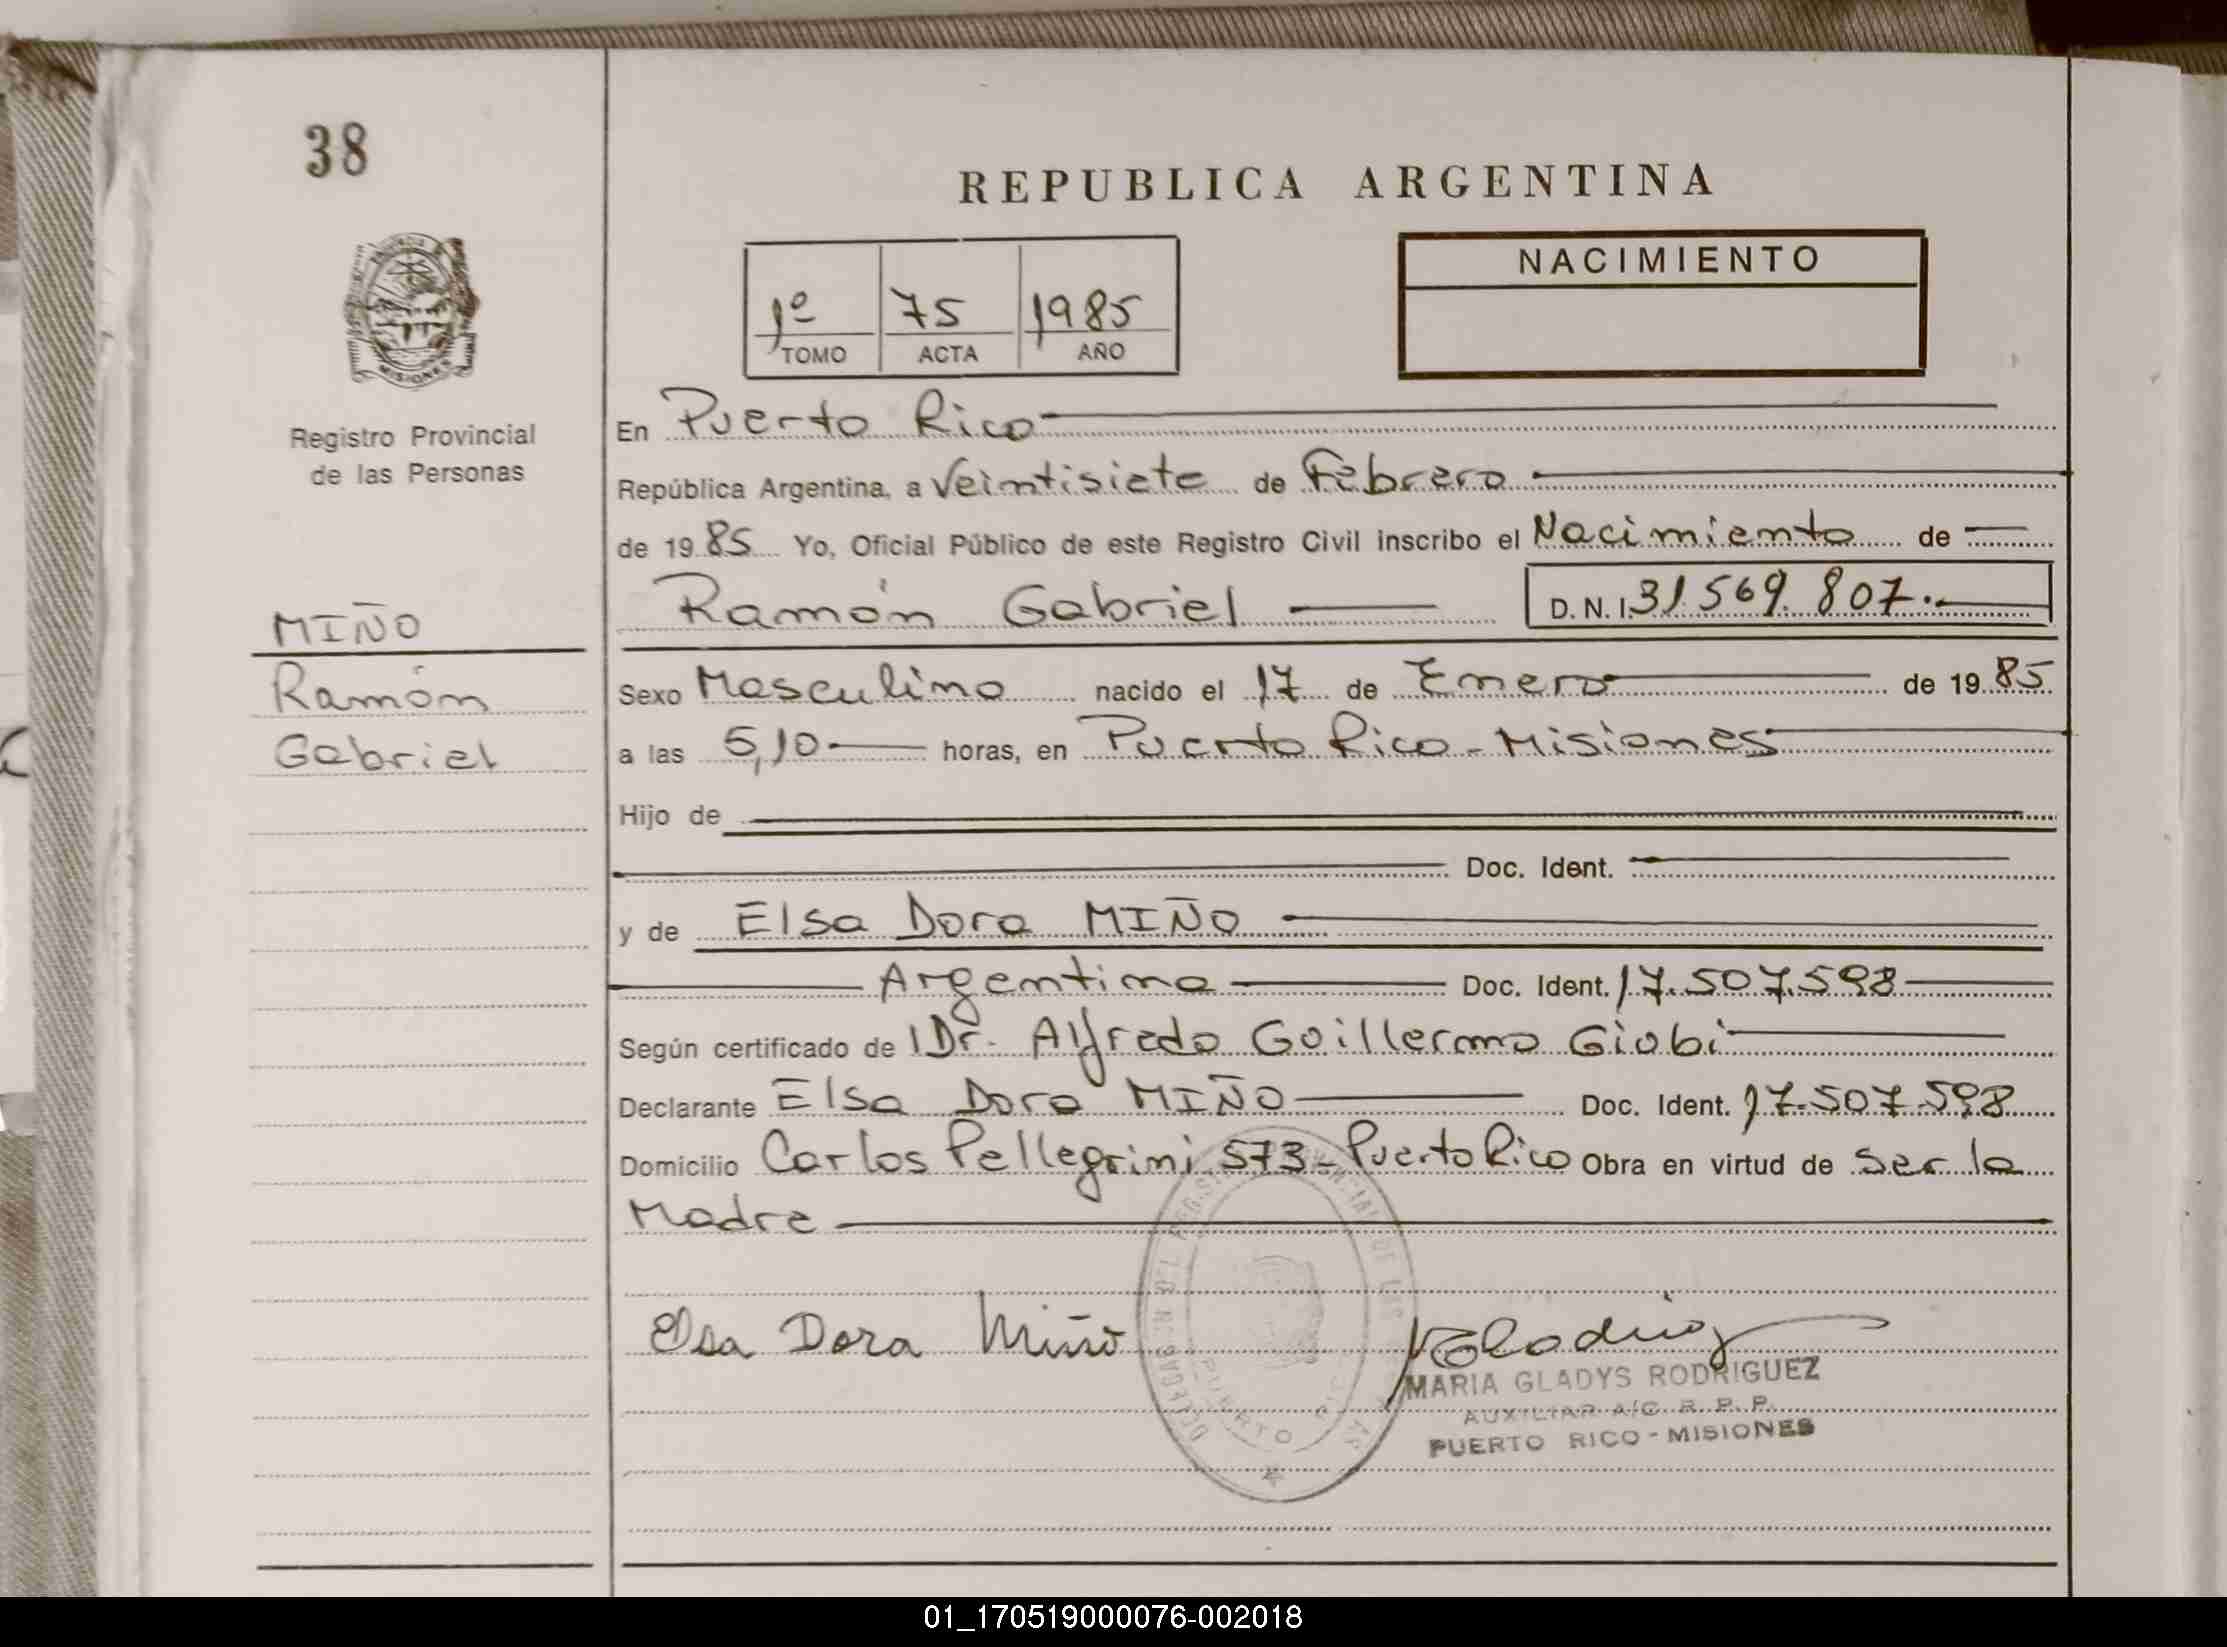 38
REPUBLICA ARGENTINA
NACIMIENTO
1º 75 1985
TOMO ACTA AÑO
MISIONES
Registro Provincial
de las Personas
MIÑO
Ramón
Gabriel
En Puerto Rico
República Argentina, a Veintisiete de Febrero
de 1985 Yo, Oficial Público de este Registro Civil inscribo el Nacimiento de
Ramón Gabriel D. N. I. 31.569.807.
Sexo Masculino nacido el 17 de Enero de 1985
a las 5,10 horas, en Puerto Rico - Misiones
Hijo de
Doc. Ident.
y de Elsa Dora MIÑO
Argentina Doc. Ident. 17.507.598
Según certificado de Dr. Alfredo Guillermo Giobi
Declarante Elsa Dora MIÑO Doc. Ident. 17.507.598
Domicilio Carlos Pellegrini 573 - Puerto Rico Obra en virtud de ser la
Madre
Elsa Dora Miño
PUERTO RICO
MARIA GLADYS RODRIGUEZ
AUXILIAR A/C R. P. P.
PUERTO RICO - MISIONES
01_170519000076-002018